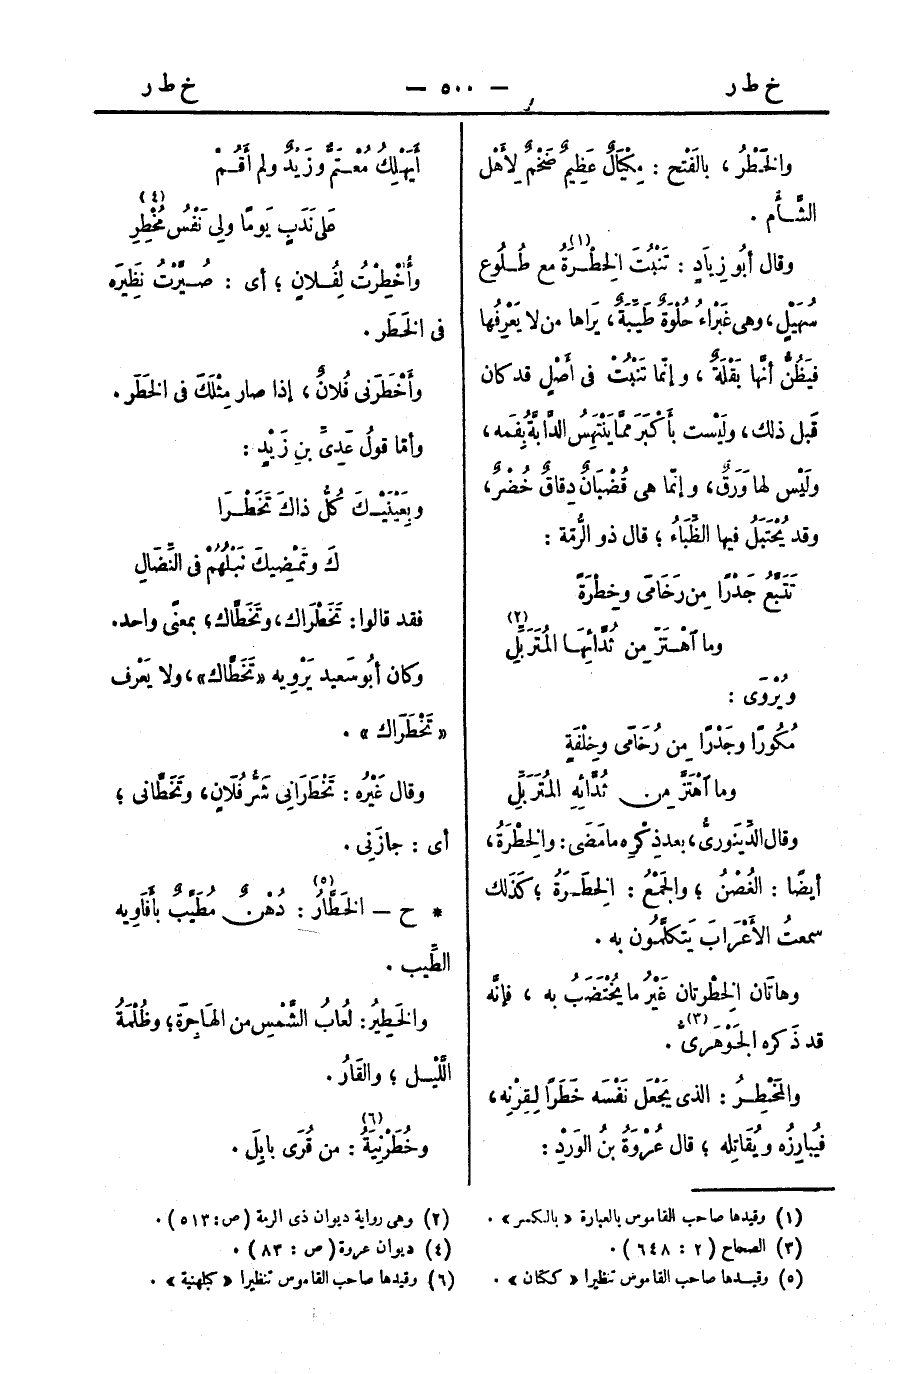 خ ط ر — ٥٠٠ — خ ط ر
والخَطْرُ ، بالفَتْح : مِكْيَالٌ عَظِيمٌ ضَخْمٌ لِأَهْل
الشَّأْم .
وقال أبُو زِيَادٍ : تَنْبُتُ الخِطْرَةُ(١) مع طُلُوع
سُهَيْلٍ ، وهى غَبْرَاءُ حُلْوَةٌ طَيِّبَةٌ ، يَراها من لا يَعْرِفُها
فيَظُنُّ أنَّها بَقْلَةٌ ، وإنّما تَنْبُتْ فى أَصْلٍ قد كان
قَبل ذلك ، ولَيْست بأَكْبَرَ ممَّا يَنْتَهِسُ الدَّابةُ بِفَمه ،
ولَيْس لها وَرَقٌ ، وإنّما هى قُضْبَانٌ دِقاقٌ خُضْرٌ ،
وقد يُحْتَبَلُ فيها الظِّبَاءُ ؛ قال ذو الرُّمّة :
تَتَبَّعُ جَدْرًا مِن رَخَامَى وخِطْرَةً
وما اهْتَزَّ مِن ثُدَّائِهَا المُتَرَبِّلِ(٢)
ويُرْوَى :
مُكُورًا وجَدْرًا مِن رُخَامَى وخِلْفَةٍ
وما اهْتَزَّ مِن ثُدَّائِهِ المُتَرَبِّلِ
وقال الدِّينَورىُّ ، بعد ذِكْرِه ما مَضَى : والخِطْرَةُ ،
أيضًا : الغُصْنُ ؛ والجَمْعُ : الخِطَرَةُ ؛ كَذَلك
سمعتُ الأَعْرَابَ يَتكلَّمُون به .
وهاتَان الخِطْرتان غَيْرُ ما يُخْتَضَبُ به ، فإنَّه
قد ذَكره الجَوْهَرىُّ(٣) .
والمُخْطِرُ : الذى يَجْعَل نَفْسَه خَطَرًا لِقِرْنِه ،
فيُبارِزُه ويُقَاتِله ؛ قال عُرْوَةُ بنُ الوَرْدِ :
أَيَهْلِكُ مُعْتَمٌّ وَزَيْدٌ ولم أَقُمْ
عَلَى نَدَبٍ يَومًا ولِى نَفْسُ مُخْطِرِ(٤)
وأُخْطِرْتُ لِفُلانٍ ؛ أى : صُيِّرْتُ نَظِيرَه
فى الخَطَر .
وأَخْطَرَنى فُلانٌ ، إذا صار مِثْلَكَ فى الخَطَر .
وأمّا قولُ عَدِىِّ بنِ زَيْدٍ :
وبِعَيْنَيْكَ كُلُّ ذاكَ تَخَطْرَا
كَ وتَمْضِيكَ نَبْلُهُمْ فى النِّضَالِ
فقد قالوا : تَخَطْرَاك ، وتَخَطَّاك ؛ بمعنًى واحد .
وكان أَبُو سَعيد يَرْويه «تَخَطَّاك» ، ولا يَعْرف
«تَخَطْرَاك» .
وقال غَيْرُه : تَخَطْرَانِى شَرُّ فُلَانٍ ، وتَخَطَّانى ؛
أى : جازَنِى .
* ح — الخَطَّارُ(٥) : دُهْنٌ مُطَيَّبٌ بأَفَاوِيه
الطِّيب .
والخَطِيرُ : لُعابُ الشَّمْسِ من الهَاجرَة ؛ وظُلْمَةُ
اللَّيْل ؛ والقَارُ .
وخُطَرْنِيَةُ(٦) : من قُرَى بابِلَ .
(١) وقيدها صاحب القاموس بالعبارة « بالكسر » .
(٢) وهى رواية ديوان ذى الرمة (ص : ٥١٣) .
(٣) الصحاح (٢ : ٦٤٨) .
(٤) ديوان عروة (ص : ٨٣) .
(٥) وقيدها صاحب القاموس تنظيرا « ككتان » .
(٦) وقيدها صاحب القاموس تنظيرا « كبلهنية » .